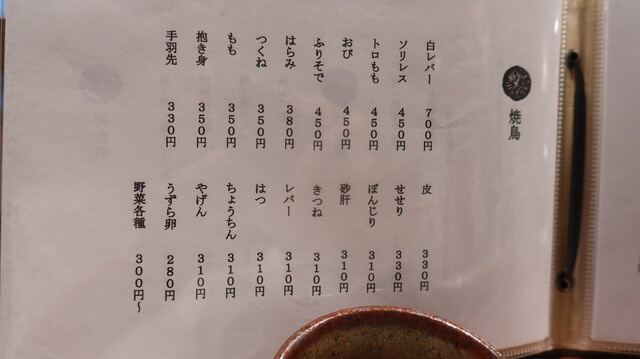 焼鳥
白レバー 700円
ソリレス 450円
トロもも 450円
おび 450円
ふりそで 450円
はらみ 380円
つくね 350円
もも 350円
抱き身 350円
手羽先 330円
皮 330円
せせり 330円
ぼんじり 310円
砂肝 310円
きつね 310円
レバー 310円
はつ 310円
ちょうちん 310円
やげん 310円
うずら卵 280円
野菜各種 300円〜